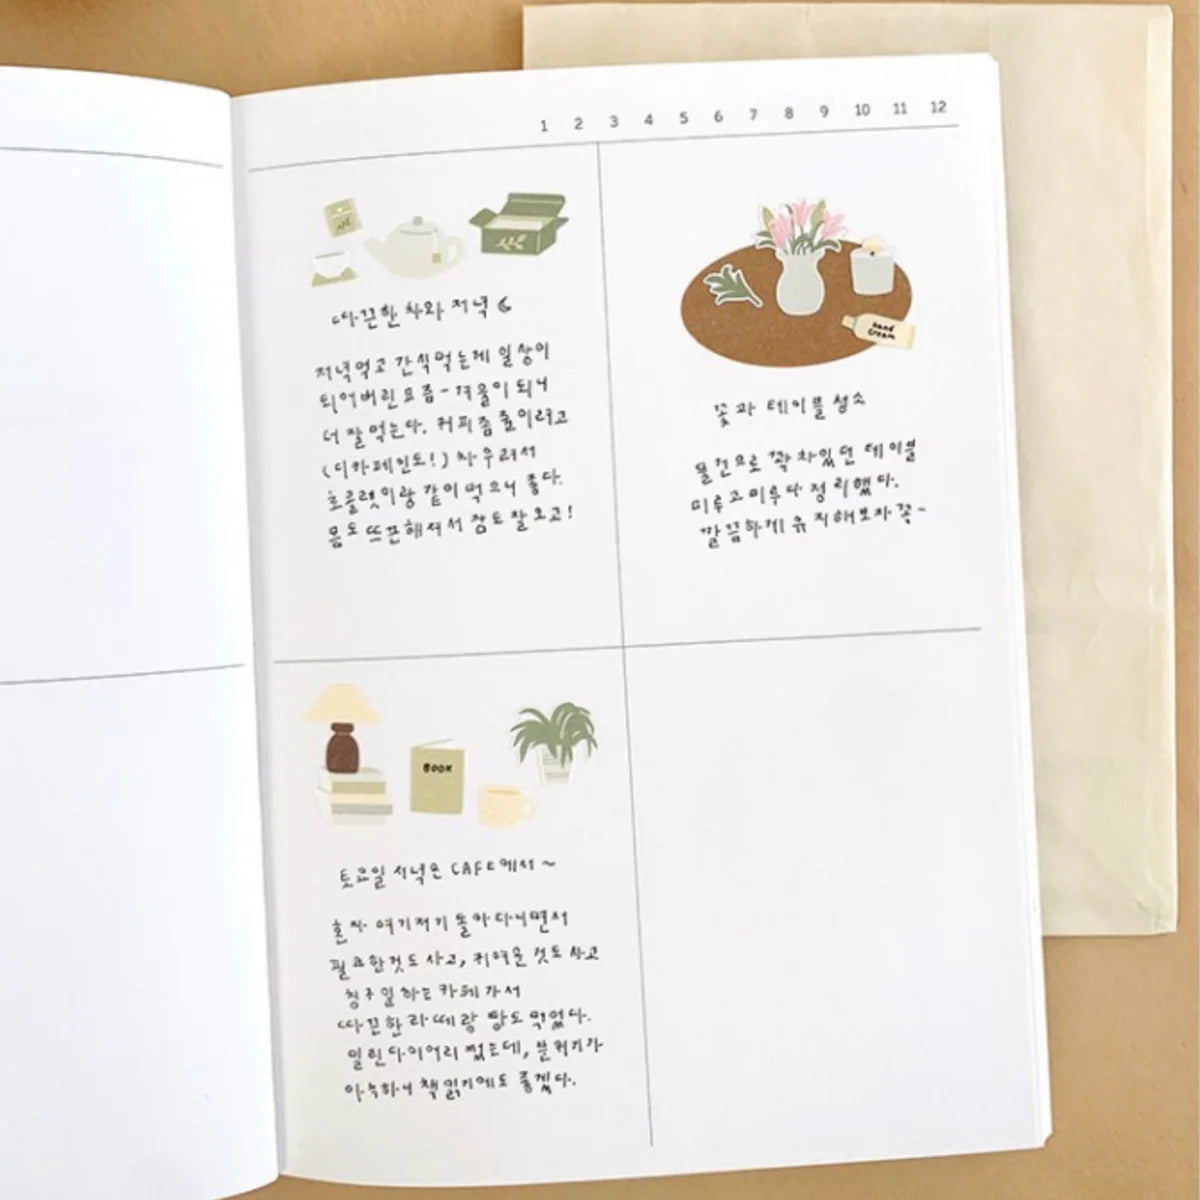 1 2 3 4 5 6 7 8 9 10 11 12
따끈한 차와 저녁
저녁먹고 간식먹는게 일상이
되어버린 요즘~ 겨울이 되니
더 잘 먹는다. 커피좀 줄이려고
(디카페인도!) 차 우려서
초콜렛이랑 같이 먹으니 좋다.
몸도 뜨끈해져서 잠도 잘 오고!
Hand
Cream
꽃과 테이블 청소
물건으로 꽉 차있던 테이블
미루고 미루다 정리했다.
깔끔하게 유지해보자 꼭~
BOOK
토요일 저녁은 CAFE에서~
혼자 여기저기 돌아다니면서
필요한것도 사고, 귀여운 것도 사고
친구 일하는 카페가서
따끈한 라떼랑 빵도 먹었다.
밀린 다이어리 썼는데, 분위기가
아늑하니 책 읽기에도 좋겠다.